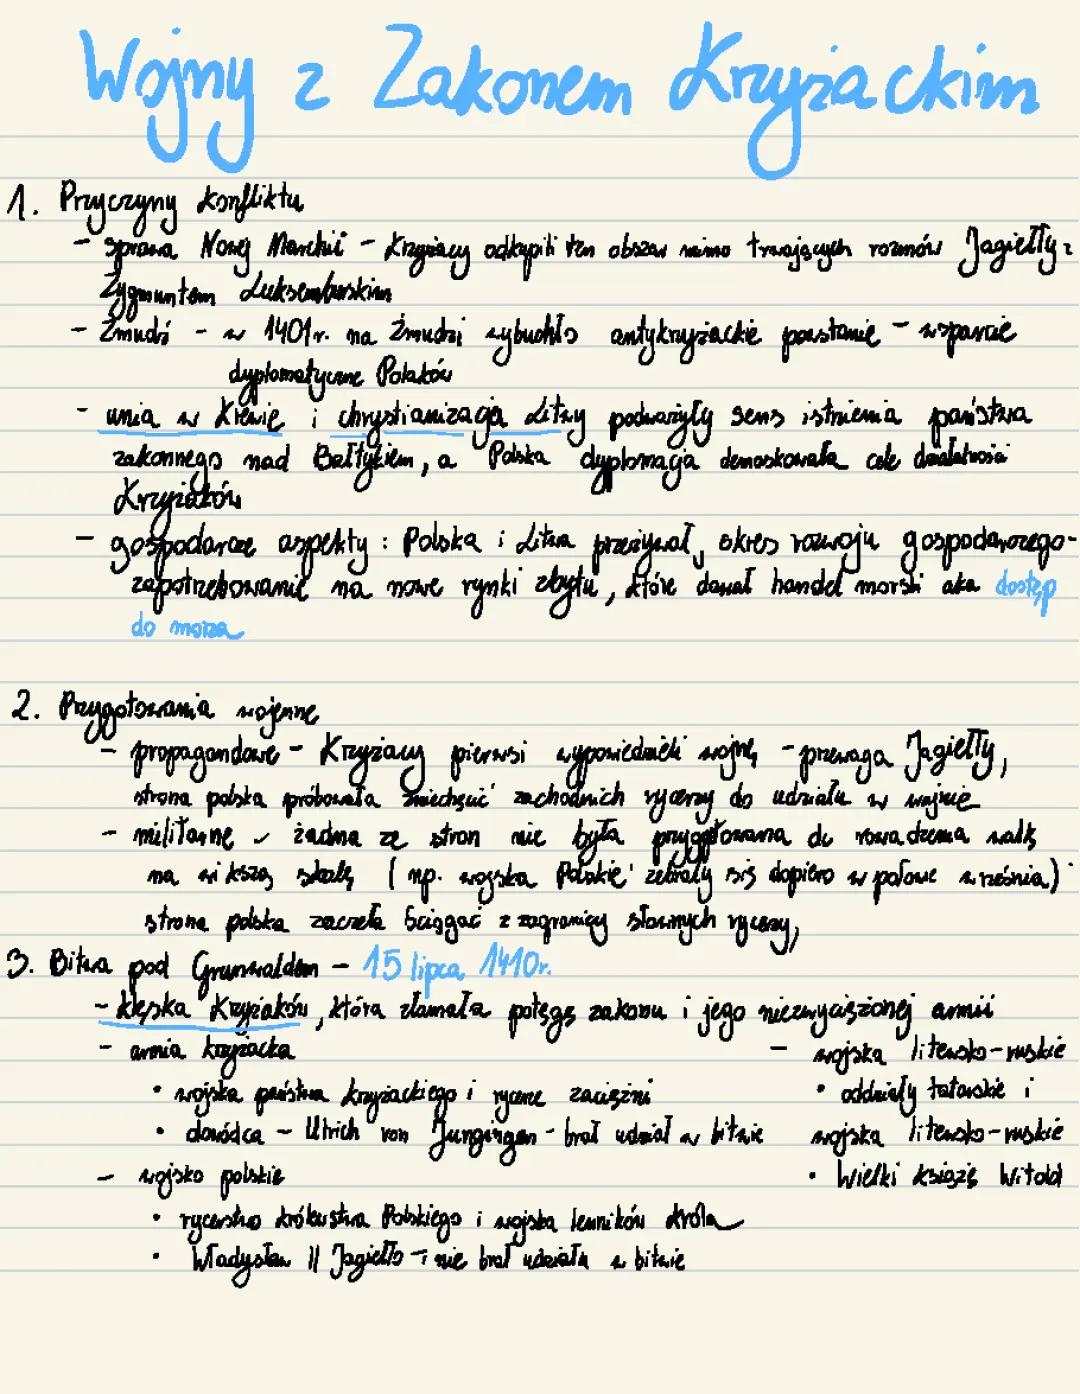 Wojny z Zakonem Krzyżackim
1. Przyczyny konfliktu
- sprawa Nowej Marchii - Krzyżacy odkupili ten obszar mimo trwających rozmów Jagiełły z
Zygmuntem Luksemburskim
- Żmudź - w 1401r. na Żmudzi wybuchło antykrzyżackie powstanie - wsparcie
dyplomatyczne Polaków
- unia w Krewie i chrystianizacja Litwy podważyły sens istnienia państwa
zakonnego nad Bałtykiem, a Polska dyplomacja demaskowała cele działalności
Krzyżaków
- gospodarcze aspekty: Polska i Litwa przeżywał, okres rozwoju gospodarczego -
zapotrzebowanie na nowe rynki zbytu, które dawał handel morski aka dostęp
do morza
2. Przygotowania wojenne
- propagandowe - Krzyżacy pierwsi wypowiedzieli wojnę - przewaga Jagiełły,
strona polska próbowała zniechęcić zachodnich rycerzy do udziału w wojnie
- militarne - żadna ze stron nie była przygotowana do rowadzenia walk
na wi kszą skalę (np. wojska Polskie zebrały się dopiero w połowie września)
strona polska zaczęła ściągać z zagranicy sławnych rycerzy,
3. Bitwa pod Grunwaldem - 15 lipca 1410r.
- klęska Krzyżaków, która złamała potęgę zakonu i jego niezwyciężonej armii
- armia krzyżacka
• wojska państwa krzyżackiego i rycerze zaciężni
• dowódca - Ulrich von Jungingen - brał udział w bitwie
- wojsko polskie
• rycerstwo królestwa Polskiego i wojska lenników króla
• Władysław II Jagiełło - nie brał udziału w bitwie
- wojska litewsko-ruskie
• oddziały tatarskie i
wojska litewsko-ruskie
• Wielki książę Witold